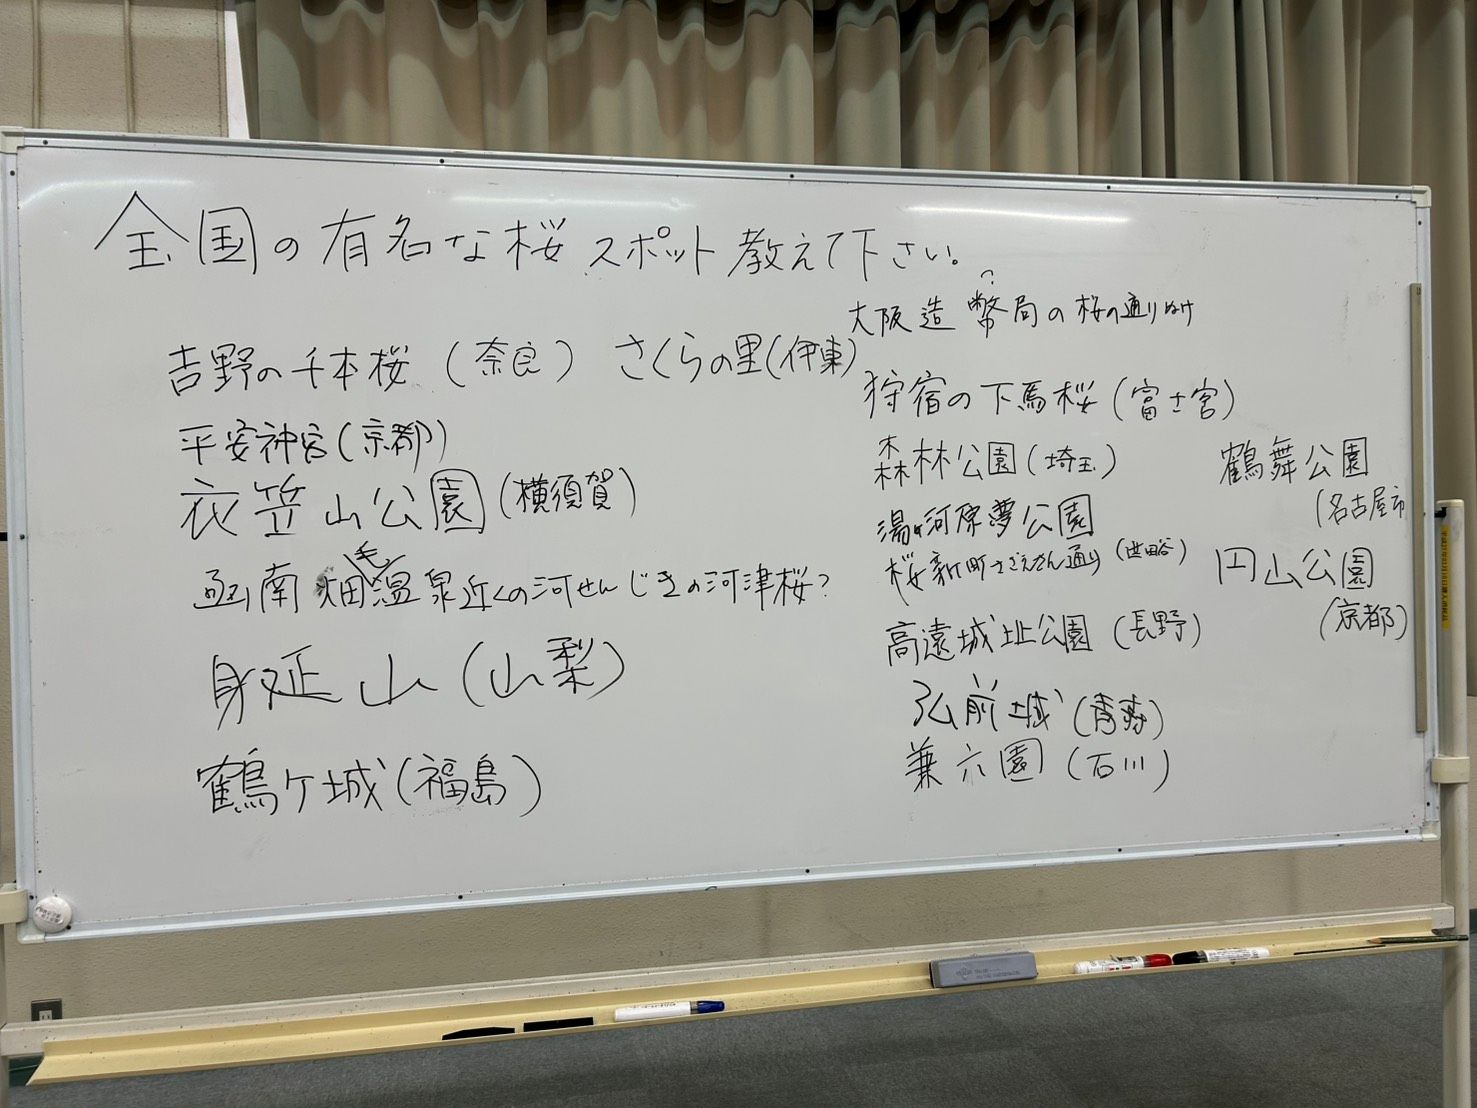 全国の有名な桜スポット教えて下さい。
吉野の千本桜(奈良)
さくらの里(伊東)
平安神宮(京都)
衣笠山公園(横須賀)
函南 畑毛温泉近くの河せんじきの河津桜?
身延山(山梨)
鶴ヶ城(福島)
大阪造幣局の桜の通りぬけ
?
狩宿の下馬桜(富士宮)
森林公園(埼玉)
湯河原夢公園
桜新町サザエさん通り(世田谷)
高遠城址公園(長野)
弘前城(青森)
兼六園(石川)
鶴舞公園
(名古屋市
円山公園
(京都)